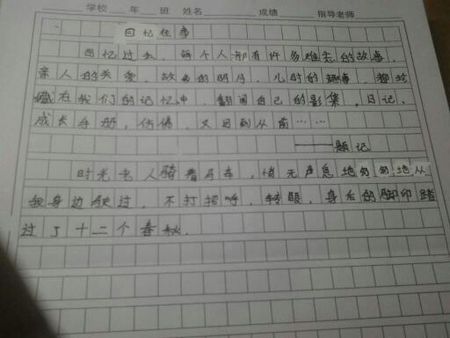 学校 年 班 姓名 成绩 指导老师
回忆往事
回忆过去，每个人都有许多难忘的故事，
亲人的关爱，故乡的明月，儿时的趣事，都珍
藏在我们的记忆中，翻阅自己的影集，日记，
成长手册，仿佛，又回到从前……
——题记
时光老人骑着马车，悄无声息地匆匆地从
我身边驶过，不打招呼，转眼，身后的脚印踏
过了十二个春秋．